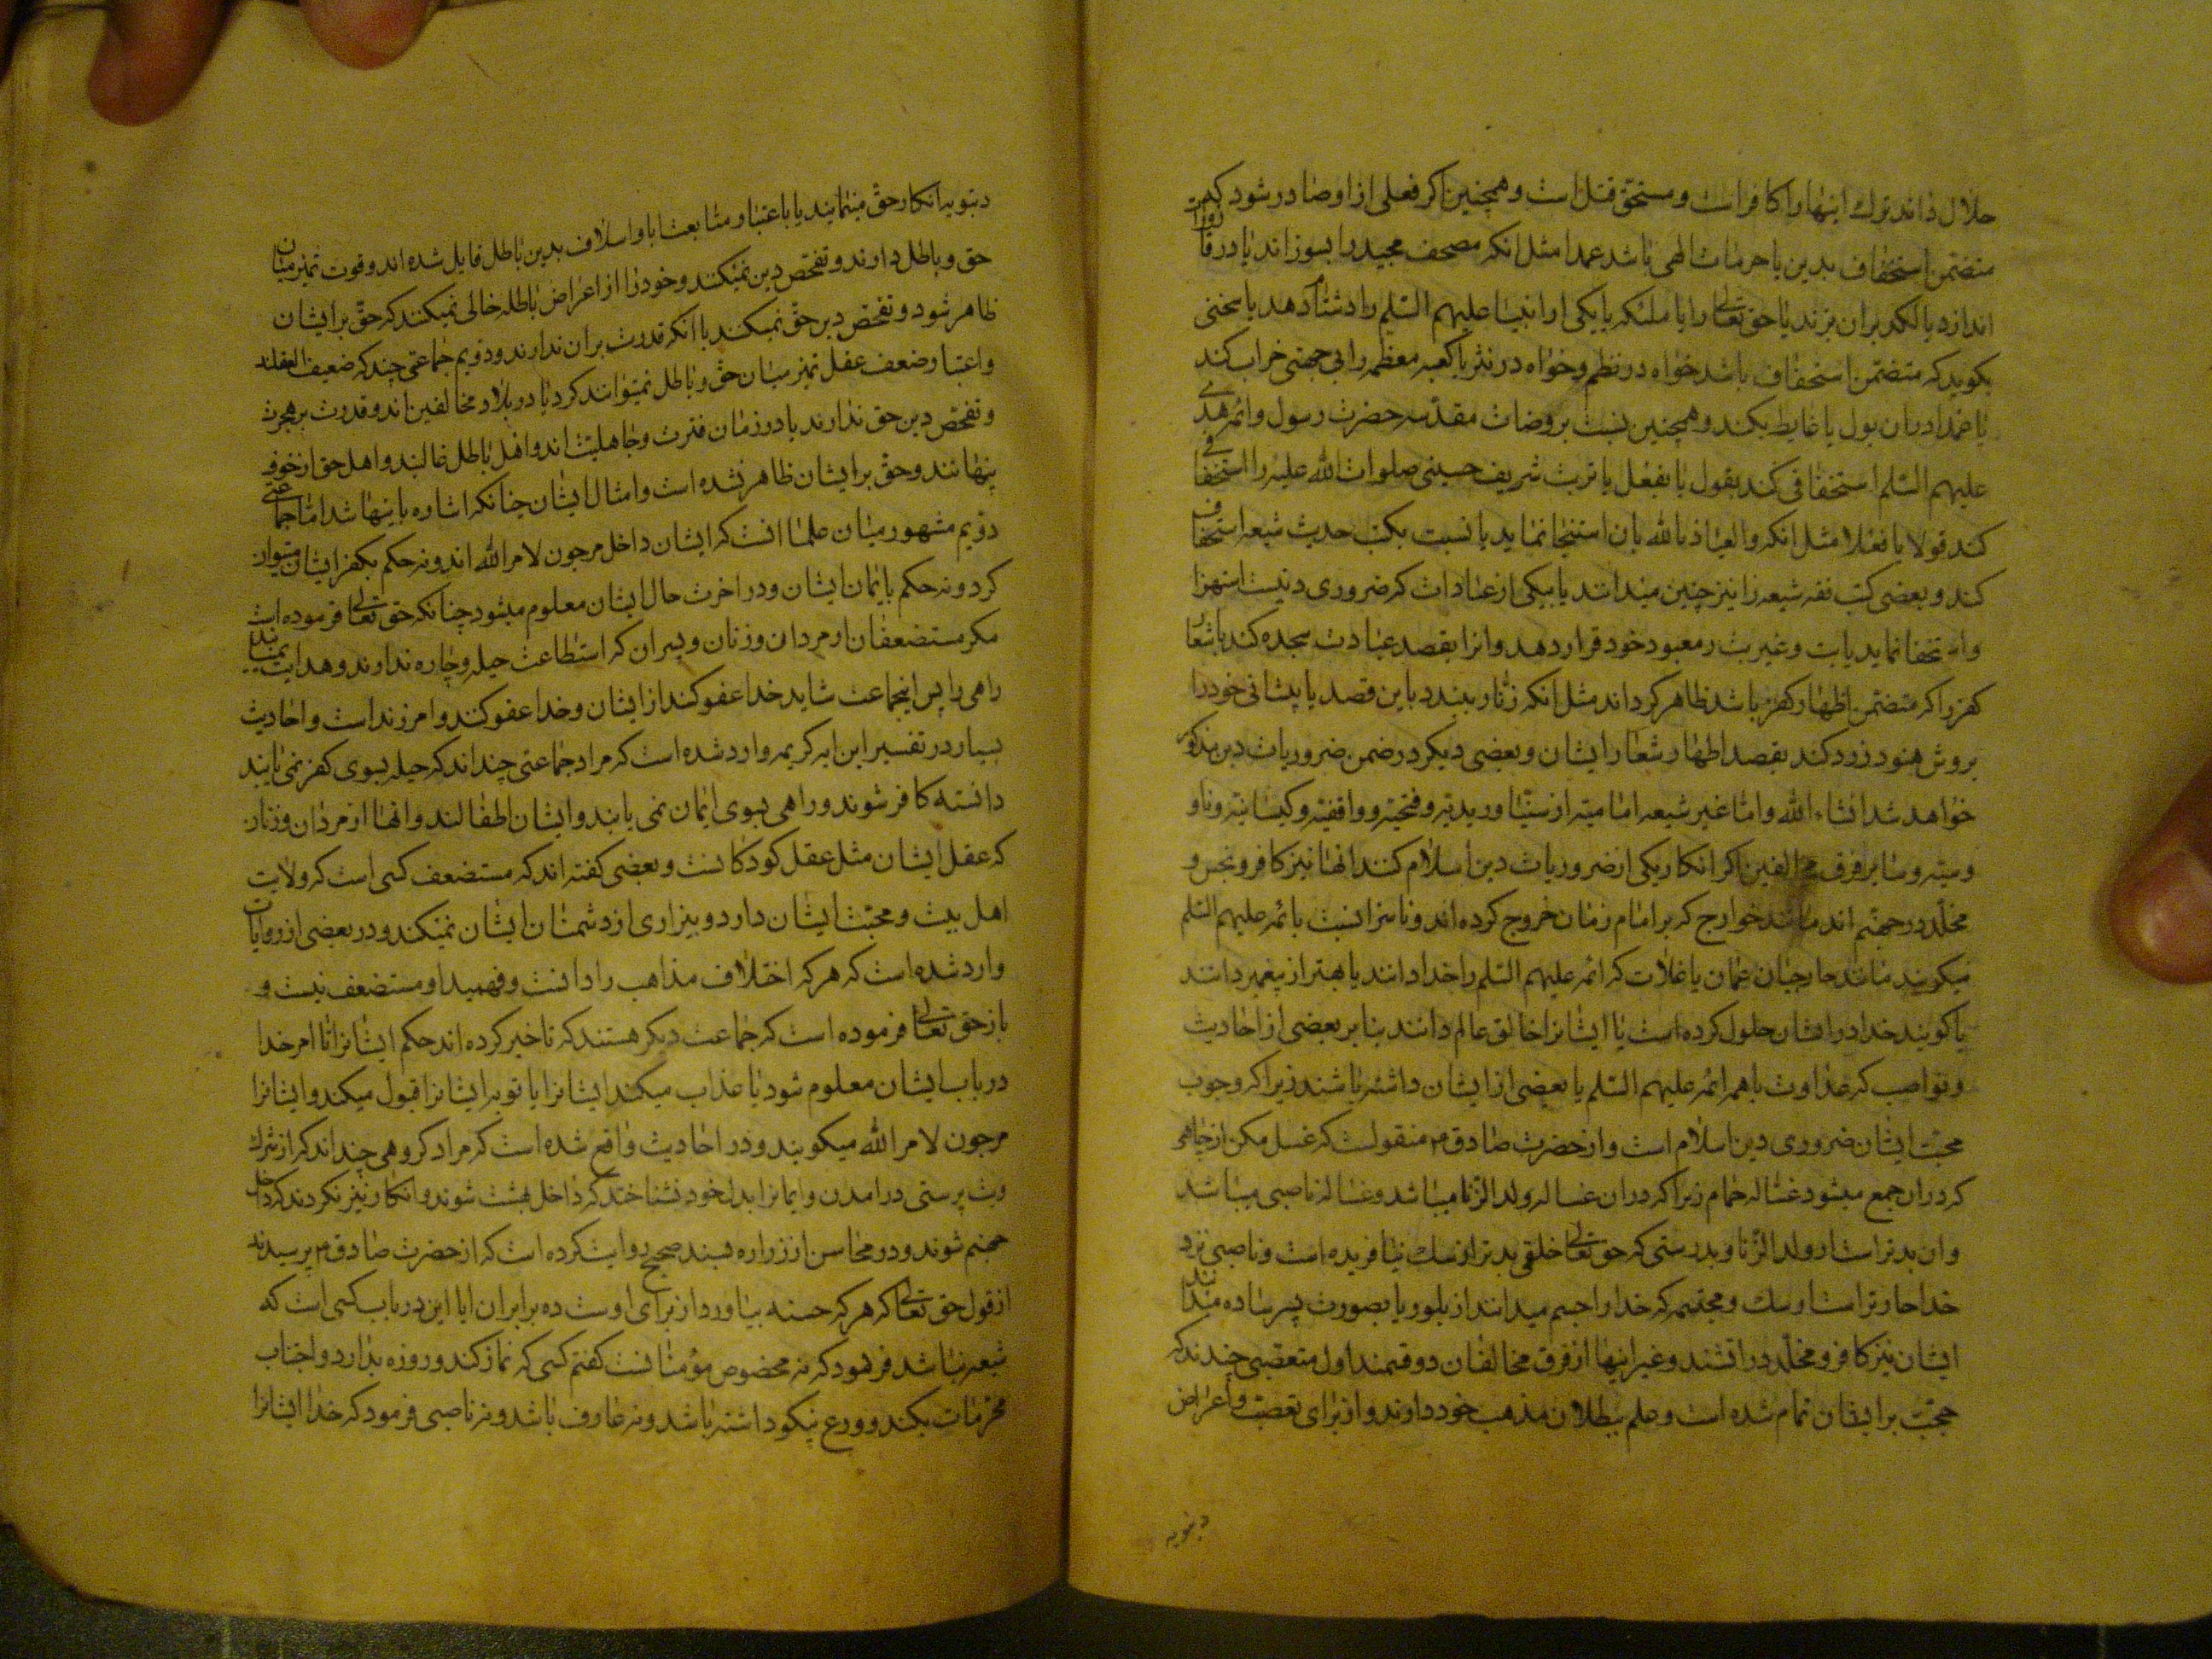 حلال داند ترك اینها را کافر است و مستحق قتل است و همچنین اکر فعلی از او صادر شود که
متضمن استخفاف بدین یا حرمات الهی باشد عمدا مثل انکه مصحف مجید را بسوزاند یا در قاذورات
اندازد یا لکد بران بزند یا حق تعالی را یا ملئکه یا یکی از انبیا علیهم السّلم را دشنام دهد یا سخنی
بکوید که متضمن استخفاف باشد خواه در نظم و خواه در نثر یا کعبه معظمه را بی جهتی خراب کند
یا عمدا دران بول یا غایط بکند و همچنین نسبت بروضات مقدّسه حضرت رسول و ائمه هدی
علیهم السّلم استخفافی کند بقول یا بفعل یا تربت شریف حسینی صلوات الله علیه را استخفاف
کند قولا یا فعلا مثل انکه والعیاذ بالله بان استنجا نماید یا نسبت بکتب حدیث شیعه استخفاف
کند و بعضی کتب فقه شیعه را نیز چنین میدانند یا بیکی از عبادات که ضروری دینست استهزا
و استخفا نماید یا بت و غیر بت را معبود خود قرار دهد و انرا بقصد عبادت سجده کند یا شعار
کفر را که متضمن اظهار کفر باشد ظاهر کرداند مثل انکه زنار ببندد باین قصد یا پیشانی خود را
بروش هنود زرد کند بقصد اظهار شعار ایشان و بعضی دیکر در ضمن ضروریات دین مذکور
خواهد شد انشاء الله و امّا غیر شیعه امامیّه از سنّیان و زیدیّه و فتحیّه و واقفیّه و کیسانیّه و ناو
وسیّه و سایر فرق مخالفین اکر انکار یکی از ضروریات دین اسلام کنند انها نیز کافر و نجس و
مخلّد در جهنّم اند مانند خوارج که بر امام زمان خروج کرده اند و ناسزا نسبت بائمه علیهم السّلم
میکویند مانند خارجیان عمان یا غلات که ائمه علیهم السّلم را خدا دانند یا بهتر از پیغمبر دانند
یا کویند خدا در ایشان حلول کرده است یا ایشانرا خالق عالم دانند بنا بر بعضی از احادیث
و نواصب که عداوت با همه ائمه علیهم السّلم یا بعضی از ایشان داشته باشند زیرا که وجوب
محبّت ایشان ضروری دین اسلام است و از حضرت صادق م منقولست که غسل مکن از چاهی
که دران جمع میشود غساله حمام زیرا که دران غساله ولد الزّنا میباشد و غساله ناصبی میباشد
و ان بدتر است از ولد الزّنا و بدرستی که حق تعالی خلقی بدتر از سك نیافریده است و ناصبی نزد
خدا خارتر است از سك و مجسّمه که خدا را جسم میدانند از بلور یا بصورت پسر ساده میدانند
ایشان نیز کافر و مخلّد در اتشند و غیر اینها از فرق مخالفان دو قسمند اول متعصّبی چند ند که
حجّت بر ایشان تمام شده است و علم ببطلان مذهب خود دارند و از برای تعصّب و اغراض
دنیویه
دنیویه انکار حقّ مینمایند یا باعتبار متابعت ابا و اسلاف بدین باطل قایل شده اند و قوت تمیز میان
حق و باطل دارند و تفحّص دین نمیکنند و خود را از اغراض باطله خالی نمیکنند که حقّ بر ایشان
ظاهر شود و تفحّص دین حقّ نمیکنند با انکه قدرت بران دارند و دویم جماعتی چند که ضعیف العقلند
و اعتبار ضعف عقل تمیز میان حقّ و باطل نمیتوانند کرد یا در بلاد مخالفین اند و قدرت بر هجرت
و تفحّص دین حق ندارند یا در زمان فترت و جاهلیّت اند و اهل باطل غالبند و اهل حق از خوف
پنهانند و حقّ بر ایشان ظاهر نشده است و امثال ایشان چنانکه اشاره باینها شد امّا جماعتی
دویم مشهور میان علما انست که ایشان داخل مرجون لامر الله اند و نه حکم بکفر ایشان میتوان
کرد و نه حکم بایمان ایشان و در اخرت حال ایشان معلوم میشود چنانکه حق تعالی فرموده است
مکر مستضعفان از مردان و زنان و پسران که استطاعت حیله و چاره ندارند و هدایت نمییابند
راهی را پس اینجماعت شاید خدا عفو کند از ایشان و خدا عفو کننده و امرزنده است و احادیث
بسیار در تفسیر این ایه کریمه وارد شده است که مراد جماعتی چند اند که حیله بسوی کفر نمی یابند
دانسته کافر شوند و راهی بسوی ایمان نمی یابند و ایشان اطفالند و انها از مردان و زنان
که عقل ایشان مثل عقل کودکانست و بعضی کفته اند که مستضعف کسی است که ولایت
اهل بیت و محبّت ایشان دارد و بیزاری از دشمنان ایشان نمیکند و در بعضی از روایات
وارد شده است که هر که اختلاف مذاهب را دانست و فهمید او مستضعف نیست و
باز حق تعالی فرموده است که جماعت دیکر هستند که تاخیر کرده اند حکم ایشانرا تا امر خدا
در باب ایشان معلوم شود یا عذاب میکند ایشانرا یا توبه ایشانرا قبول میکند و ایشانرا
مرجون لامر الله میکویند و در احادیث واقع شده است که مراد کروهی چند اند که از شرك
و بت پرستی در امدن و ایمانرا بدل خود نشناختند که داخل بهشت شوند و انکار نیز نکردند که داخل
جهنم شوند و در محاسن از زراره بسند صحیح روایت کرده است که از حضرت صادق م پرسیدند
از قول حق تعالی که هر که حسنه بیاورد از برای اوست ده برابر ان ایا این در باب کسی است که
شیعه نباشد فرمود که نه مخصوص مؤمنانست کفتم کسی که نماز کند و روزه بدارد و اجتناب
محرّمات بکند و ورع نیکو داشته باشد و نه عارف باشد و نه ناصبی فرمود که خدا ایشانرا